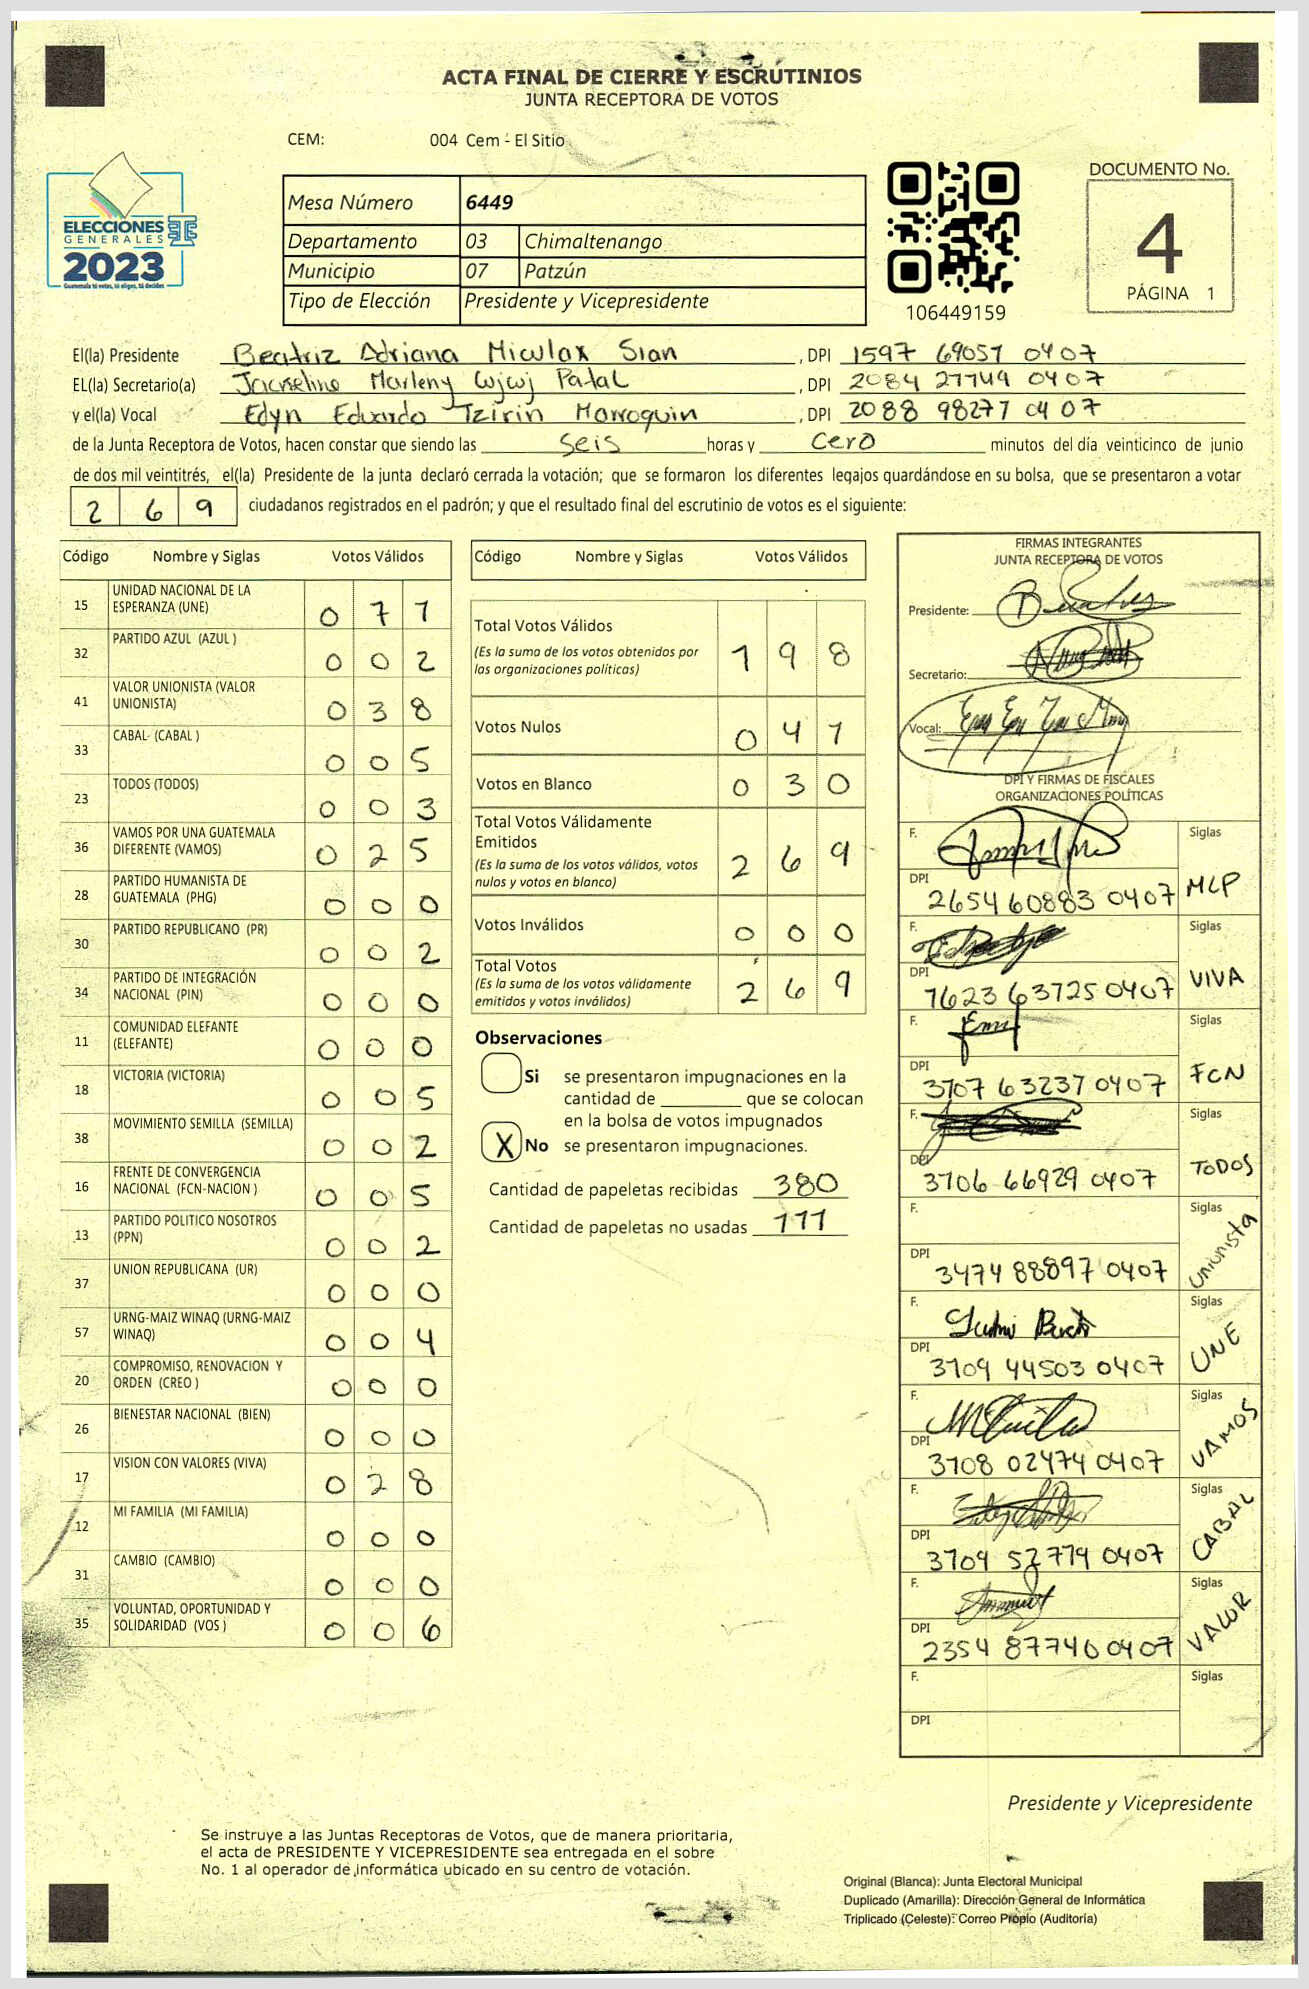 ACTA FINAL DE CIERRE Y ESCRUTINIOS
JUNTA RECEPTORA DE VOTOS
CEM: 004 Cem - El Sitio
ELECCIONES
GENERALES
2023
Guatemala tú votas, tú eliges, tú decides
Mesa Número 6449
Departamento 03 Chimaltenango
Municipio 07 Patzún
Tipo de Elección Presidente y Vicepresidente
106449159
DOCUMENTO No.
4
PÁGINA 1
El(la) Presidente Beatriz Adriana Miculax Sian, DPI 1597 69051 0407
EL(la) Secretario(a) Jacqueline Marleny Cujcuj Patal, DPI 2084 27749 0407
y el(la) Vocal Edyn Eduardo Tzirin Marroquin, DPI 2088 98277 0407
de la Junta Receptora de Votos, hacen constar que siendo las seis horas y cero minutos del día veinticinco de junio
de dos mil veintitrés, el(la) Presidente de la junta declaró cerrada la votación; que se formaron los diferentes legajos guardándose en su bolsa, que se presentaron a votar
2 6 9 ciudadanos registrados en el padrón; y que el resultado final del escrutinio de votos es el siguiente:
Código Nombre y Siglas Votos Válidos
15 UNIDAD NACIONAL DE LA ESPERANZA (UNE) 0 7 1
32 PARTIDO AZUL (AZUL ) 0 0 2
41 VALOR UNIONISTA (VALOR UNIONISTA) 0 3 8
33 CABAL (CABAL ) 0 0 5
23 TODOS (TODOS) 0 0 3
36 VAMOS POR UNA GUATEMALA DIFERENTE (VAMOS) 0 2 5
28 PARTIDO HUMANISTA DE GUATEMALA (PHG) 0 0 0
30 PARTIDO REPUBLICANO (PR) 0 0 2
34 PARTIDO DE INTEGRACIÓN NACIONAL (PIN) 0 0 0
11 COMUNIDAD ELEFANTE (ELEFANTE) 0 0 0
18 VICTORIA (VICTORIA) 0 0 5
38 MOVIMIENTO SEMILLA (SEMILLA) 0 0 2
16 FRENTE DE CONVERGENCIA NACIONAL (FCN-NACION ) 0 0 5
13 PARTIDO POLITICO NOSOTROS (PPN) 0 0 2
37 UNION REPUBLICANA (UR) 0 0 0
57 URNG-MAIZ WINAQ (URNG-MAIZ WINAQ) 0 0 4
20 COMPROMISO, RENOVACION Y ORDEN (CREO ) 0 0 0
26 BIENESTAR NACIONAL (BIEN) 0 0 0
17 VISION CON VALORES (VIVA) 0 2 8
12 MI FAMILIA (MI FAMILIA) 0 0 0
31 CAMBIO (CAMBIO) 0 0 0
35 VOLUNTAD, OPORTUNIDAD Y SOLIDARIDAD (VOS ) 0 0 6
Código Nombre y Siglas Votos Válidos
Total Votos Válidos 1 9 8
(Es la suma de los votos obtenidos por
las organizaciones políticas)
Votos Nulos 0 4 1
Votos en Blanco 0 3 0
Total Votos Válidamente
Emitidos 2 6 9
(Es la suma de los votos válidos, votos
nulos y votos en blanco)
Votos Inválidos 0 0 0
Total Votos 2 6 9
(Es la suma de los votos válidamente
emitidos y votos inválidos)
Observaciones
Si se presentaron impugnaciones en la
cantidad de ________ que se colocan
en la bolsa de votos impugnados
X No se presentaron impugnaciones.
Cantidad de papeletas recibidas 380
Cantidad de papeletas no usadas 111
FIRMAS INTEGRANTES
JUNTA RECEPTORA DE VOTOS
Presidente:
Secretario:
Vocal:
DPI Y FIRMAS DE FISCALES
ORGANIZACIONES POLÍTICAS
F. Siglas
DPI 2654 60883 0407 MLP
F. Siglas
DPI 1623 63725 0407 VIVA
F. Siglas
DPI 3707 63237 0407 FCN
F. Siglas
DPI 3706 66929 0407 TODOS
F. Siglas
DPI 3474 88897 0407 Unionista
F. Siglas
DPI 3709 44503 0407 UNE
F. Siglas
DPI 3708 02474 0407 VAMOS
F. Siglas
DPI 3709 52779 0407 CABAL
F. Siglas
DPI 2354 87740 0407 VALOR
F. Siglas
DPI
Presidente y Vicepresidente
Se instruye a las Juntas Receptoras de Votos, que de manera prioritaria,
el acta de PRESIDENTE Y VICEPRESIDENTE sea entregada en el sobre
No. 1 al operador de informática ubicado en su centro de votación.
Original (Blanca): Junta Electoral Municipal
Duplicado (Amarilla): Dirección General de Informática
Triplicado (Celeste): Correo Propio (Auditoría)